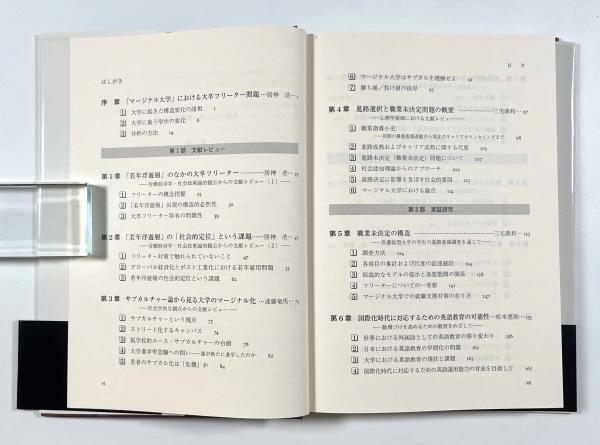 はしがき
序 章 「マージナル大学」における大卒フリーター問題…居神 浩…1
1 大学に起きた構造変化の諸相 1
2 大学に集う学生の変化 6
3 分析の方法 14
第Ⅰ部 文献レビュー
第1章 「若年浮遊層」のなかの大卒フリーター…居神 浩…23
――労働経済学・社会政策論的観点からの文献レビュー（1）――
1 フリーターの概念把握 23
2 「若年浮遊層」出現の構造的必然性 32
3 大卒フリーター特有の問題性 39
第2章 「若年浮遊層」の「社会的定位」という課題…居神 浩…47
――労働経済学・社会政策論的観点からの文献レビュー（2）――
1 フリーター対策で触れられていないこと 47
2 グローバル経済化とポスト工業化における若年雇用問題 51
3 若年浮遊層の社会的定位という課題 62
第3章 サブカルチャー論から見る大学のマージナル化…遠藤竜馬…71
――社会学的な観点からの文献レビュー――
1 サブカルチャーという視点 71
2 ストリート化するキャンパス 74
3 脱学校的ユース・サブカルチャーの台頭 78
4 大学進学率急騰への問い――誰が新たに進学したのか 82
5 若者のサブカル化は「危機」か 85
vi
目 次
6 マージナル大学はサブカルを理解せよ 91
7 勝ち組／負け組の彼岸 94
第4章 進路選択と職業未決定問題の概要…三宅義和…97
――心理学領域における文献レビュー――
1 職業指導小史 98
――初期の職業指導運動から現在のキャリアカウンセリングまで――
2 進路成熟およびキャリア成熟に関する尺度 105
3 進路未決定（職業未決定）問題について 107
4 社会認知理論からのアプローチ 112
5 進路決定に影響を及ぼす社会的要因 113
6 マージナル大学における論点 114
第Ⅱ部 実証研究
第5章 職業未決定の構造…三宅義和…123
――非選抜型大学の学生の進路意識調査を通じて――
1 調査方法 124
2 各項目の集計および尺度の記述統計 124
3 仮説的なモデルの提示と各変数間の関係 136
4 フリーターについての考察 141
5 マージナル大学での就職支援対策の在り方 147
第6章 国際化時代に対応するための英語教育の可能性…松本恵美…155
――動機づけを高めるための教育をめざして――
1 世界における外国語としての英語教育の移り変わり 156
2 日本における英語教育の早期化の問題 161
3 大学における英語教育の現状と課題 163
4 国際化時代に対応するための英語運用能力の育成を目指して 167
vii